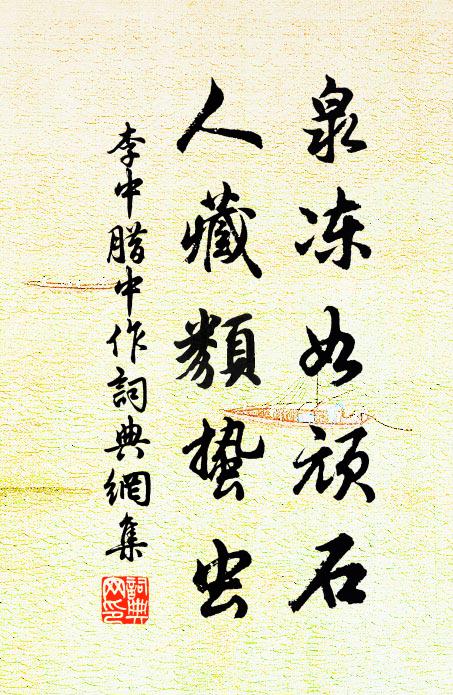 泉冻如顽石
人藏類蛰虫
李中腊中作詞典網集
詞典網印